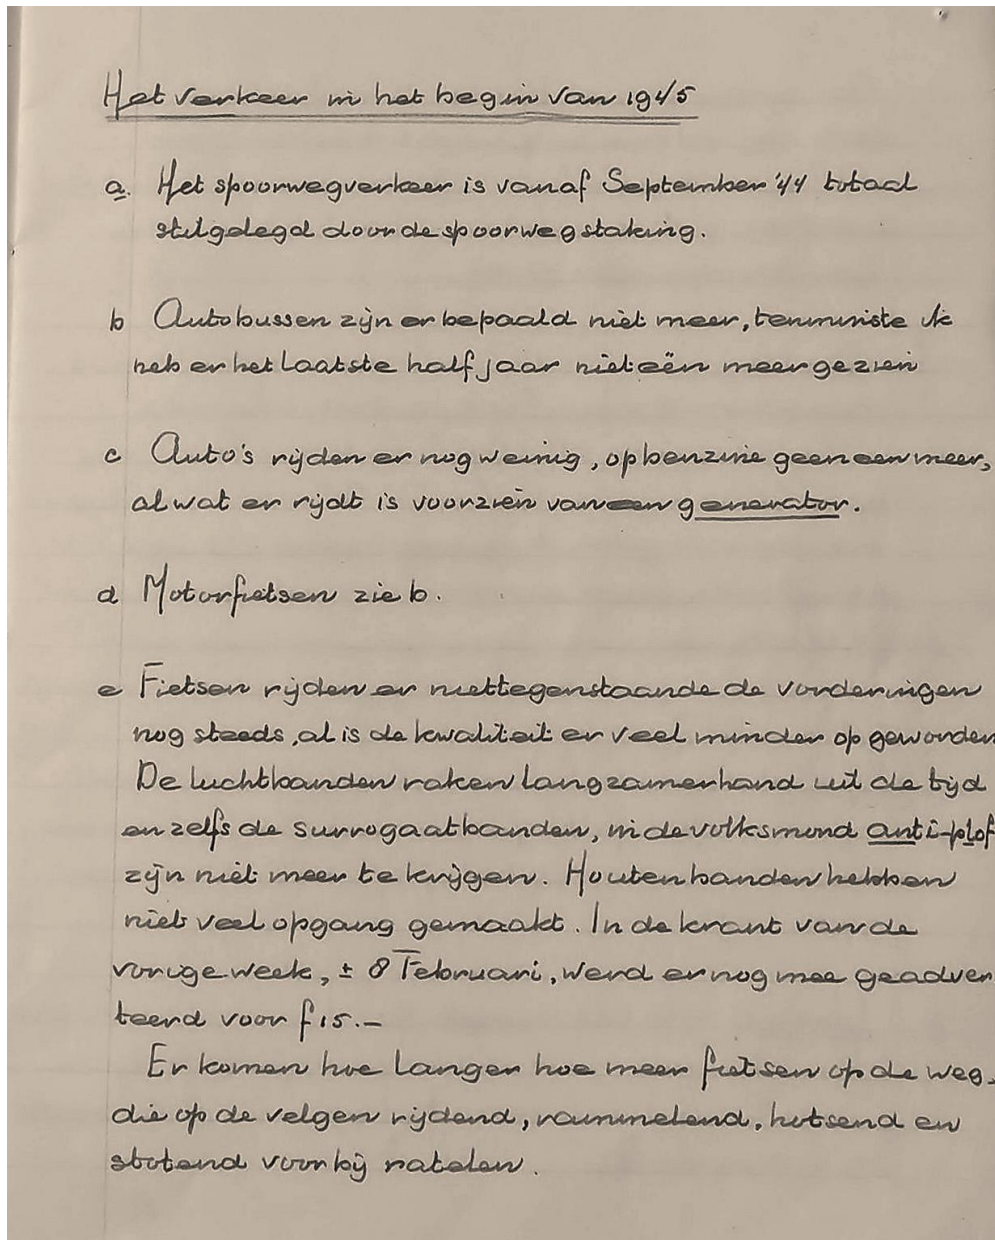 Het verkeer in het begin van 1945
a. Het spoorwegverkeer is vanaf September '44 totaal
stilgelegd door de spoorwegstaking.
b Autobussen zijn er bepaald niet meer, tenminste ik
heb er het laatste half jaar niet één meer gezien
c Auto's rijden er nog weinig, op benzine geen een meer,
al wat er rijdt is voorzien van een generator.
d Motorfietsen zie b.
e Fietsen rijden er niettegenstaande de vorderingen
nog steeds, al is de kwaliteit er veel minder op geworden
De luchtbanden raken langzamerhand uit de tijd
en zelfs de surrogaatbanden, in de volksmond anti-plof
zijn niet meer te krijgen. Houten banden hebben
niet veel opgang gemaakt. In de krant van de
vorige week, ± 8 Februari, werd er nog mee geadver
teerd voor f 15.-
Er komen hoe langer hoe meer fietsen op de weg
die op de velgen rijdend, rammelend, hotsend en
stotend voorbij ratelen.